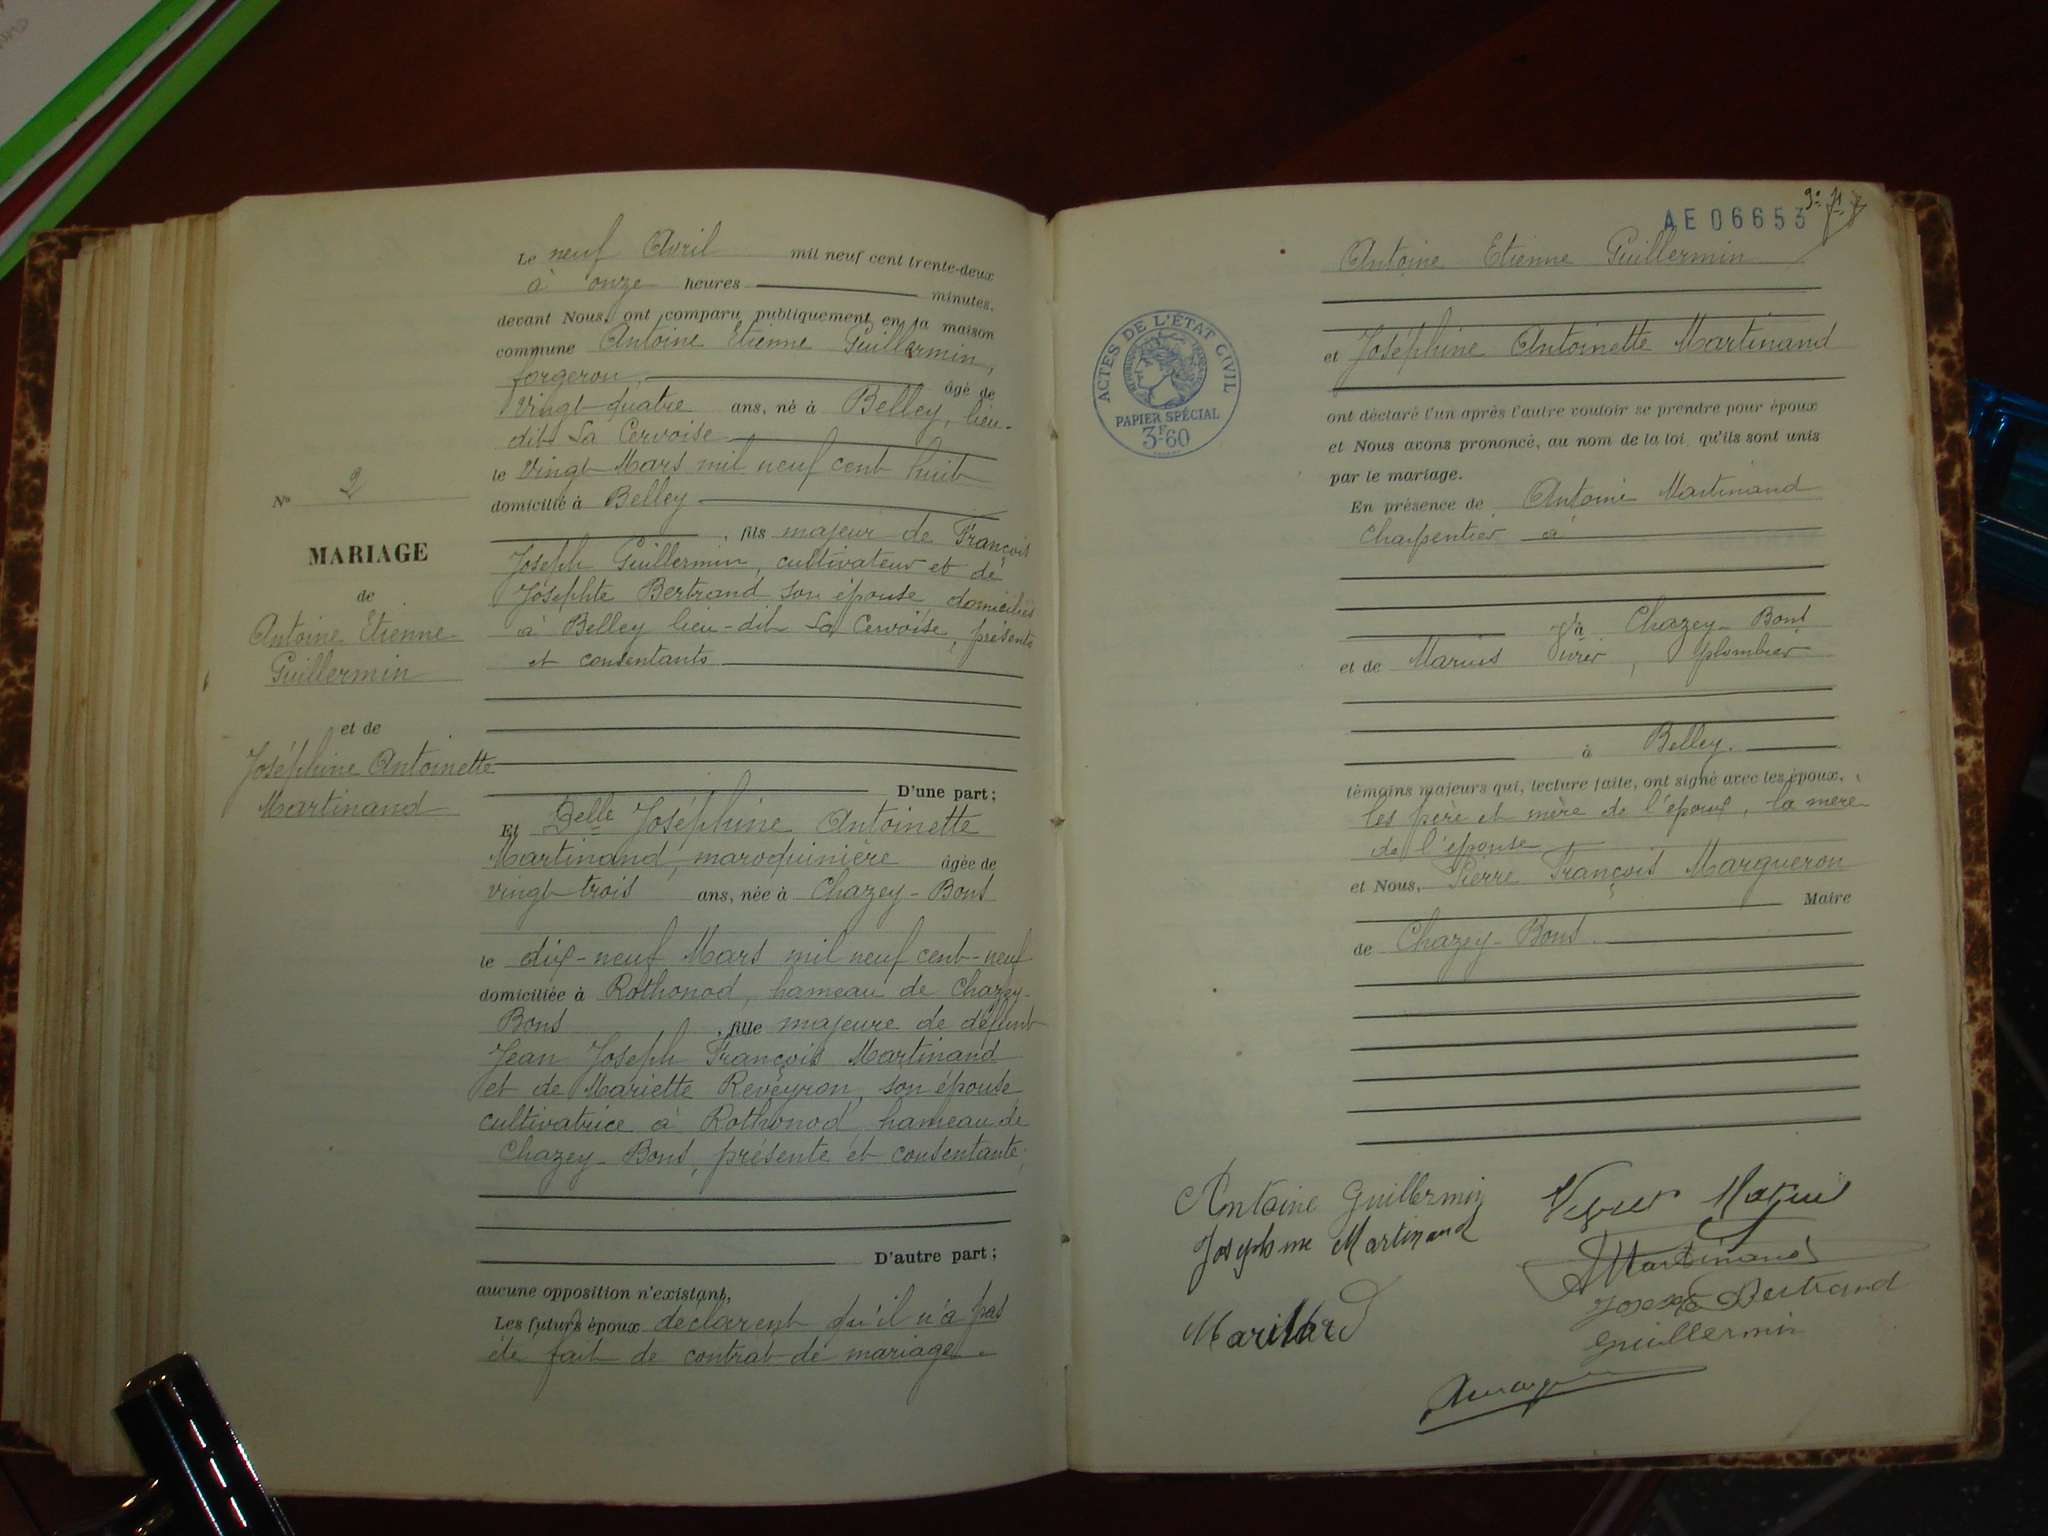 N° 2
MARIAGE
de
Antoine Etienne
Guillermin
et de
Joséphine Antoinette
Martinand
Le neuf Avril mil neuf cent trente-deux
à onze heures minutes.
devant Nous, ont comparu publiquement en la maison
commune Antoine Etienne Guillermin,
forgeron, âgé de
vingt-quatre ans, né à Belley, lieu-
dit La Cervoise
le vingt Mars mil neuf cent huit
domicilié à Belley
, fils majeur de François
Joseph Guillermin, cultivateur et de
Joséphte Bertrand son épouse, domiciliés
à Belley lieu-dit La Cervoise, présents
et consentants
D'une part;
Et Delle Joséphine Antoinette
Martinand, maroquinière âgée de
vingt trois ans, née à Chazey-Bons
le dix-neuf Mars mil neuf cent-neuf
domiciliée à Rothonod, hameau de Chazey-
Bons , fille majeure de défunt
Jean Joseph François Martinand
et de Mariette Reveyron, son épouse,
cultivatrice à Rothonod hameau de
Chazey-Bons, présente et consentante;
D'autre part;
aucune opposition n'existant,
Les futurs époux déclarent qu'il n'a pas
été fait de contrat de mariage.
AE 06653
Antoine Etienne Guillermin
ACTES DE L'ÉTAT CIVIL
PAPIER SPÉCIAL
3F60
et Joséphine Antoinette Martinand
ont déclaré l'un après l'autre vouloir se prendre pour époux
et Nous avons prononcé, au nom de la loi, qu'ils sont unis
par le mariage.
En présence de Antoine Martinand
Charpentier à
Chazey-Bons
et de Marius plombier
à Belley.
témoins majeurs qui, lecture faite, ont signé avec les époux,
les père et mère de l'époux, la mère
de l'épouse
et Nous, Pierre François Margueron
Maire
de Chazey-Bons.
Antoine Guillermin
Josephine Martinand
Martinand
Bertrand
Guillermin